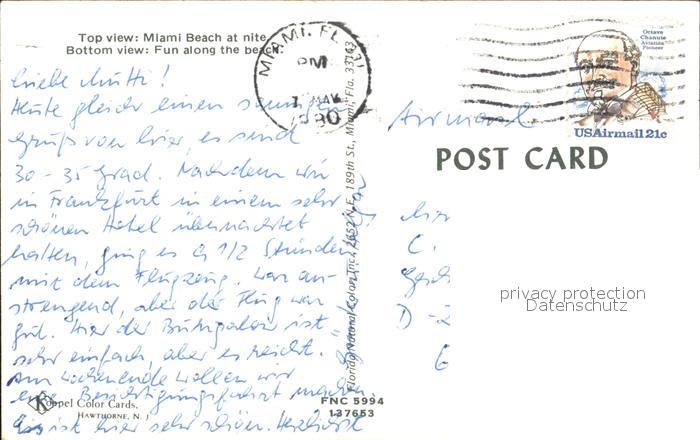 Top view: Miami Beach at nite
Bottom view: Fun along the beach
MIAMI, FL 331
PM
1980
Octave
Chanute
Aviation
Pioneer
USAirmail 21c
POST CARD
Airmail
Liebe Mutti!
Heute gleich einen sonnigen
Gruß von hier, es sind
30-35 Grad. Nachdem wir
in Frankfurt in einem sehr
schönen Hotel übernachtet
hatten, ging es 9 1/2 Stunden
mit dem Flugzeug. War an-
strengend, aber der Flug war
gut. Hier der Bungalow ist
sehr einfach, aber es reicht.
Am Wochenende wollen wir
eine Besichtigungsfahrt machen.
Es ist hier sehr schön. Herzlichst
Florida Natural Color, Inc., 2652 N.E. 189th St., Miami, Fla. 33163
C.
D -2
privacy protection
Datenschutz
Koppel Color Cards.
HAWTHORNE, N. J.
FNC 5994
137653